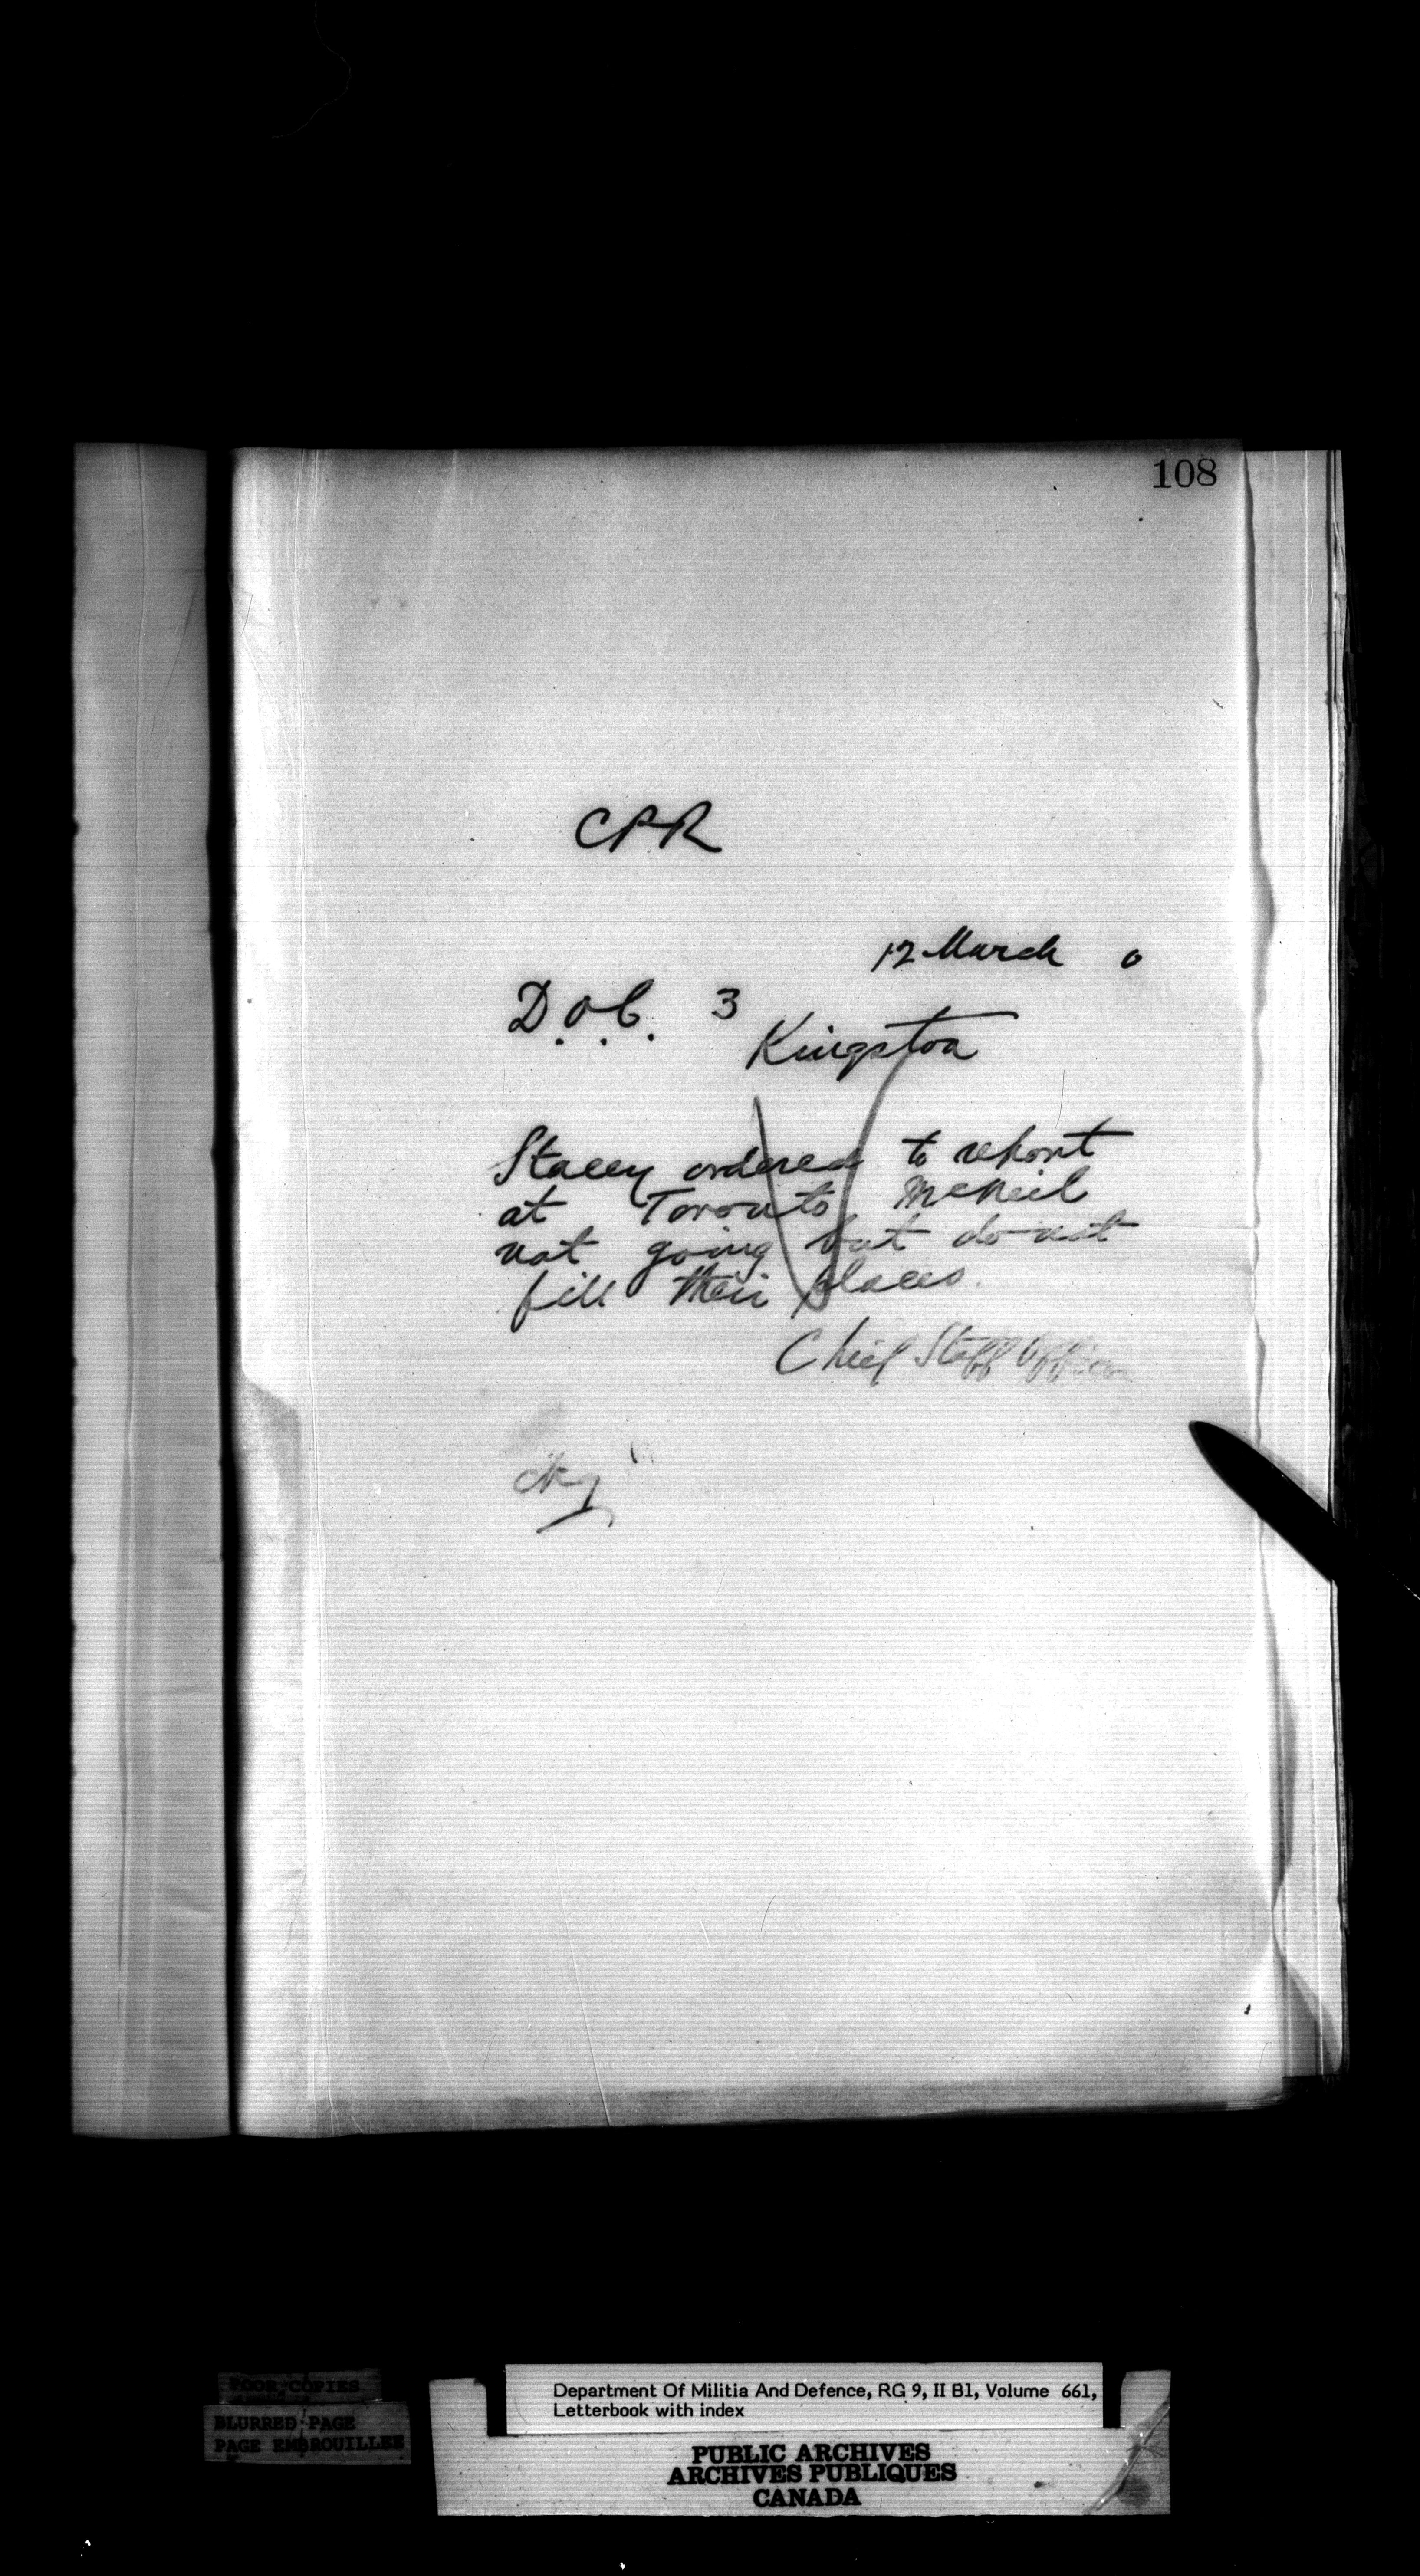 108
CPR
12 March 0
D.O.C. 3
Kingston
Stacey ordered to report
at Toronto McNeil
not going but do not
fill their places.
Chief Staff Officer
POOR COPIES
BLURRED PAGE
PAGE EMBROUILLEE
Department Of Militia And Defence, RG 9, II B1, Volume 661,
Letterbook with index
PUBLIC ARCHIVES
ARCHIVES PUBLIQUES
CANADA